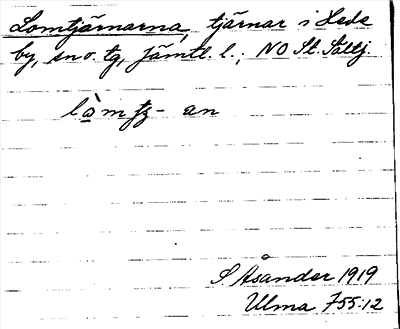 Lomtjärnarna, tjärnar i Hede
by, sn o. tg, Jämtl. l.; NO St. Sältj.
S. Åsander 1919
Ulma 755:12